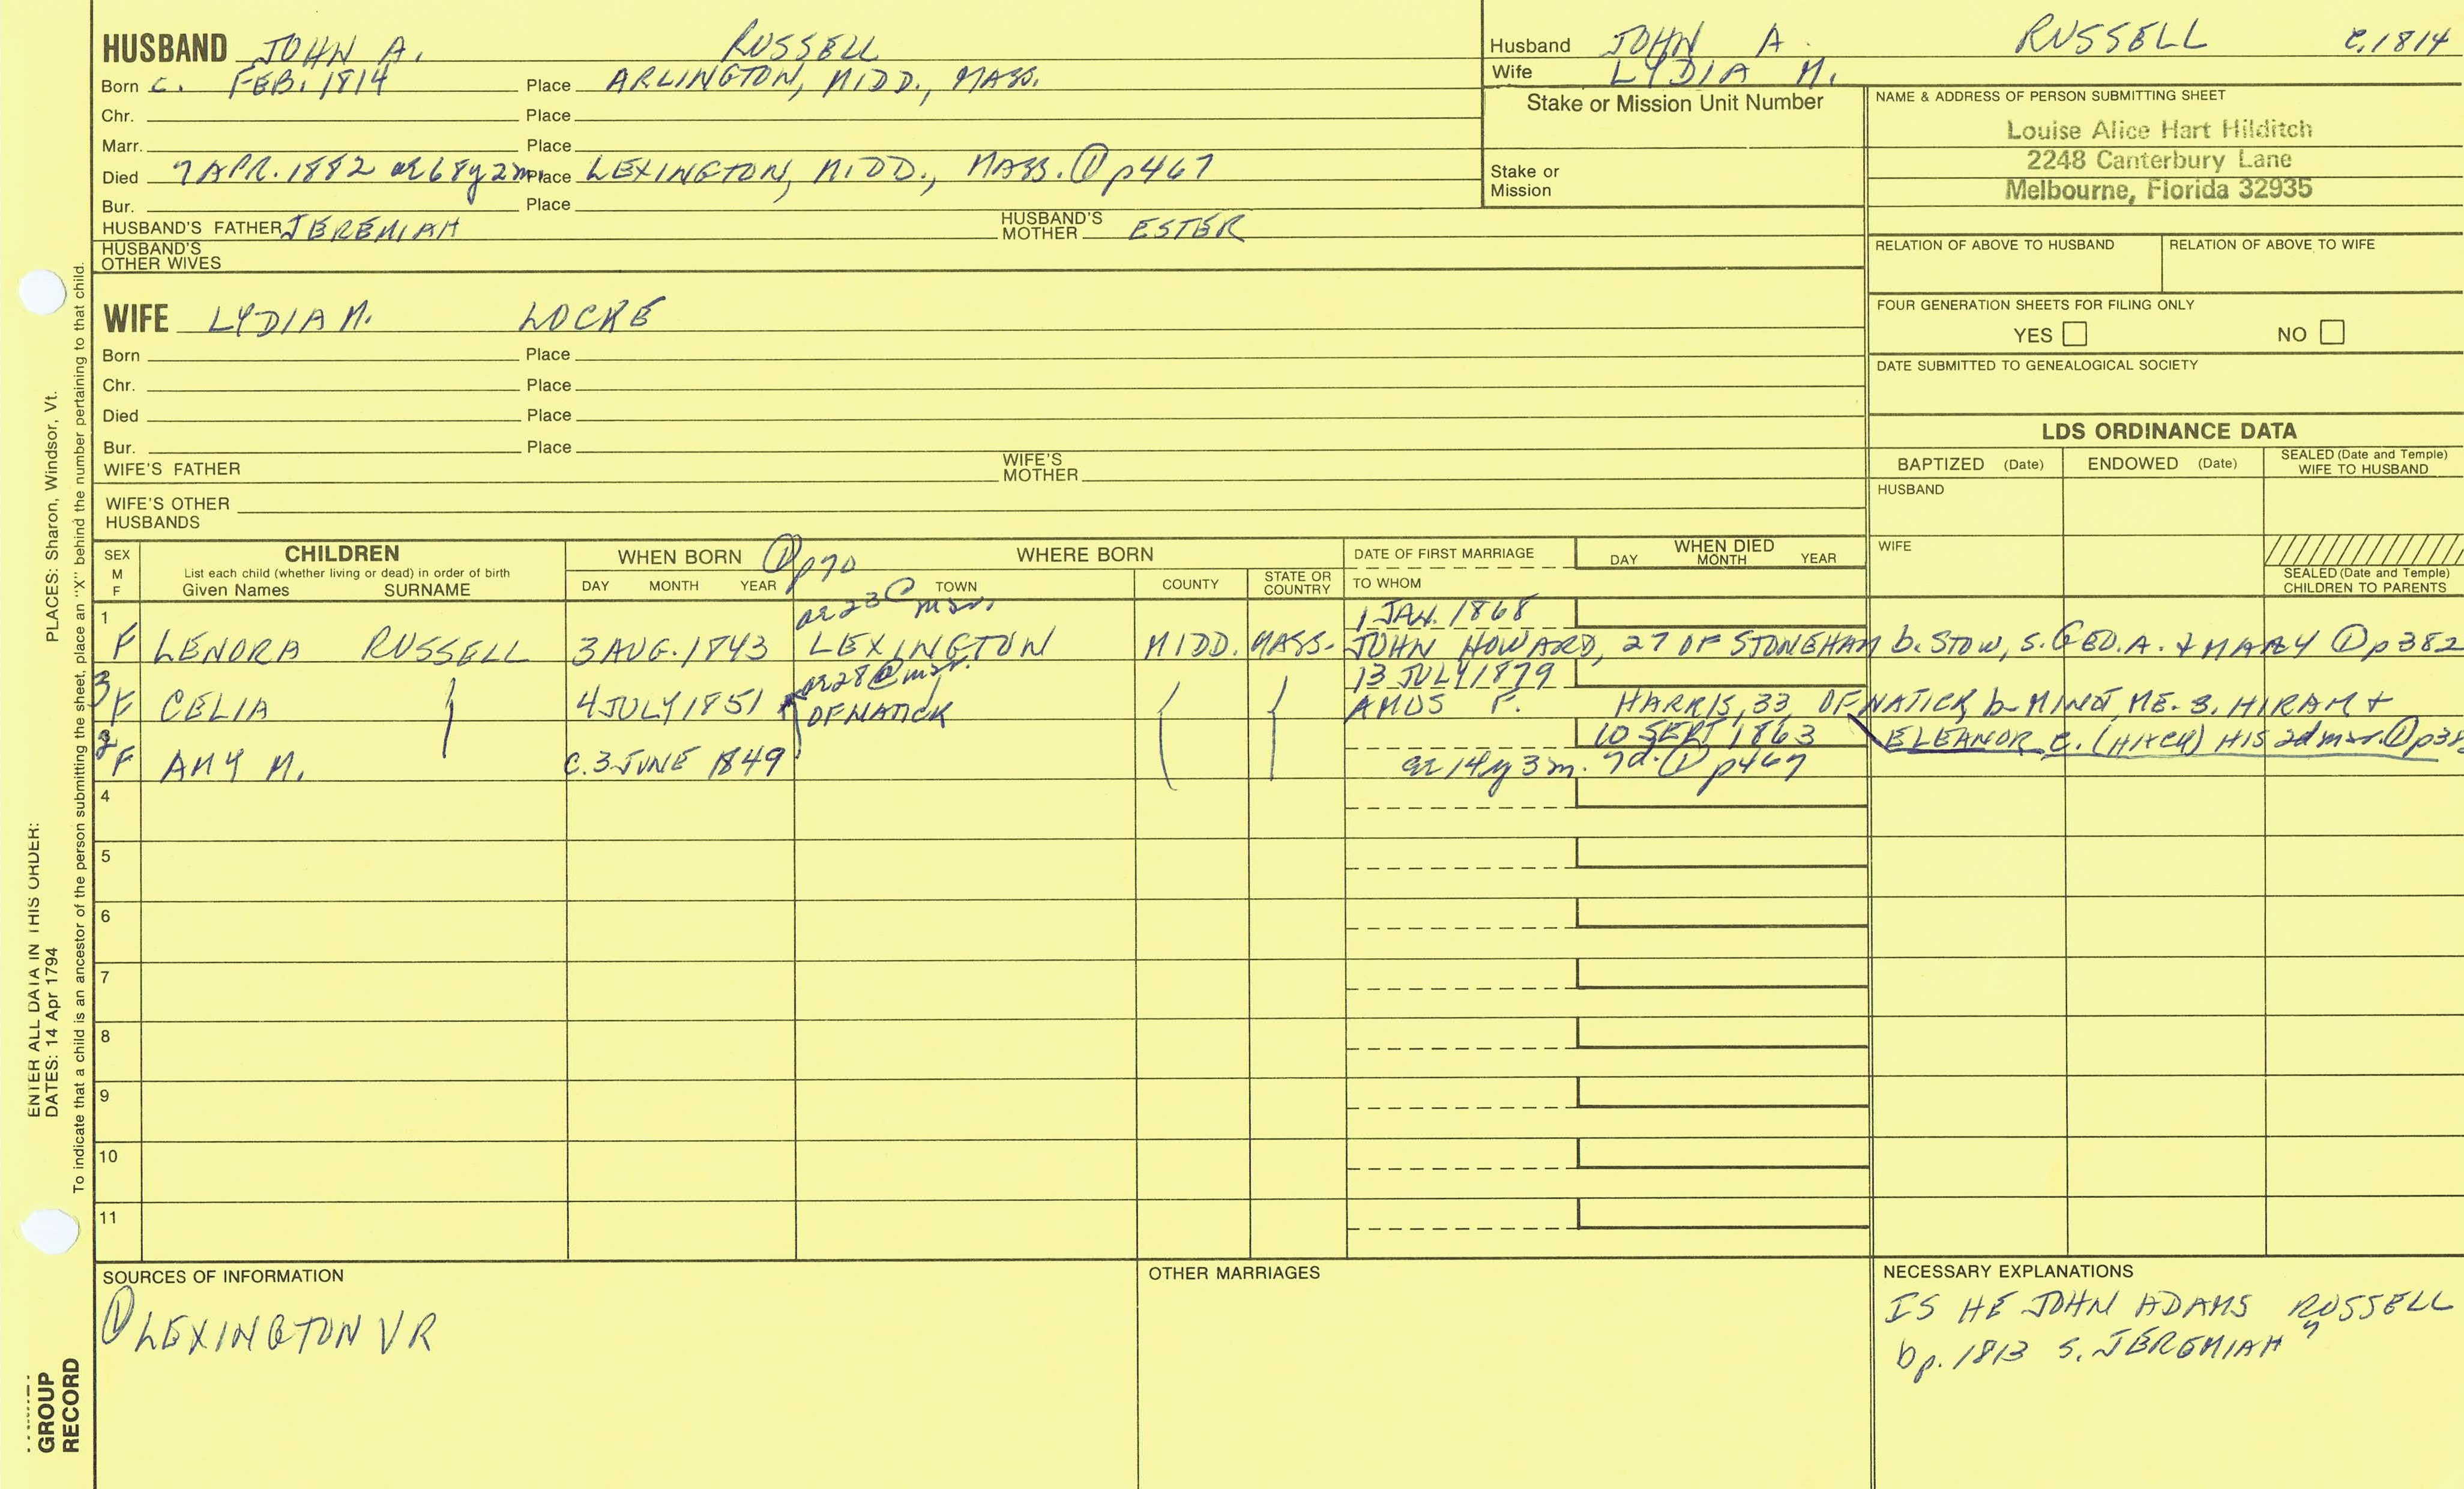 HUSBAND JOHN A. RUSSELL
Born c. FEB. 1814 Place ARLINGTON, MIDD., MASS.
Chr. Place
Marr. Place
Died 7 APR. 1882 ae 68y 2m Place LEXINGTON, MIDD., MASS. ① p467
Bur. Place
HUSBAND'S FATHER JEREMIAH HUSBAND'S MOTHER ESTER
HUSBAND'S OTHER WIVES
Husband JOHN A. RUSSELL c. 1814
Wife LYDIA M.
Stake or Mission Unit Number
Stake or Mission
NAME & ADDRESS OF PERSON SUBMITTING SHEET
Louise Alice Hart Hilditch
2248 Canterbury Lane
Melbourne, Florida 32935
RELATION OF ABOVE TO HUSBAND RELATION OF ABOVE TO WIFE
FOUR GENERATION SHEETS FOR FILING ONLY
YES NO
DATE SUBMITTED TO GENEALOGICAL SOCIETY
WIFE LYDIA M. LOCKE
Born Place
Chr. Place
Died Place
Bur. Place
WIFE'S FATHER WIFE'S MOTHER
WIFE'S OTHER HUSBANDS
LDS ORDINANCE DATA
BAPTIZED (Date) ENDOWED (Date) SEALED (Date and Temple) WIFE TO HUSBAND
HUSBAND
WIFE
SEALED (Date and Temple) CHILDREN TO PARENTS
SEX M F
CHILDREN
List each child (whether living or dead) in order of birth
Given Names SURNAME
WHEN BORN ① p70 WHERE BORN
DAY MONTH YEAR TOWN COUNTY STATE OR COUNTRY
DATE OF FIRST MARRIAGE
TO WHOM
WHEN DIED
DAY MONTH YEAR
1 ae 23 @ mar. 1 JAN. 1868
F LENORA RUSSELL 3 AUG. 1843 LEXINGTON MIDD. MASS. JOHN HOWARD, 27 OF STONEHAM b. STOW, s. GEO. A. & MARY ① p382
3 ae 28 @ mar. 13 JULY 1879
F CELIA 4 JULY 1851 OF NATICK AMOS P. HARRIS, 33, OF NATICK b. MINOT, ME. S. HIRAM +
2 10 SEPT 1863 ELEANOR C. HIS 2d mar. ①
F AMY M. c. 3 JUNE 1849 ae 14y 3m. 7d. ① p467
4
5
6
7
8
9
10
11
SOURCES OF INFORMATION
① LEXINGTON VR
OTHER MARRIAGES
NECESSARY EXPLANATIONS
IS HE JOHN ADAMS RUSSELL
bp. 1813 S. JEREMIAH ?
PLACES: Sharon, Windsor, Vt.
ENTER ALL DATA IN THIS ORDER:
DATES: 14 Apr 1794
To indicate that a child is an ancestor of the person submitting the sheet, place an "X" behind the number pertaining to that child.
GROUP
RECORD